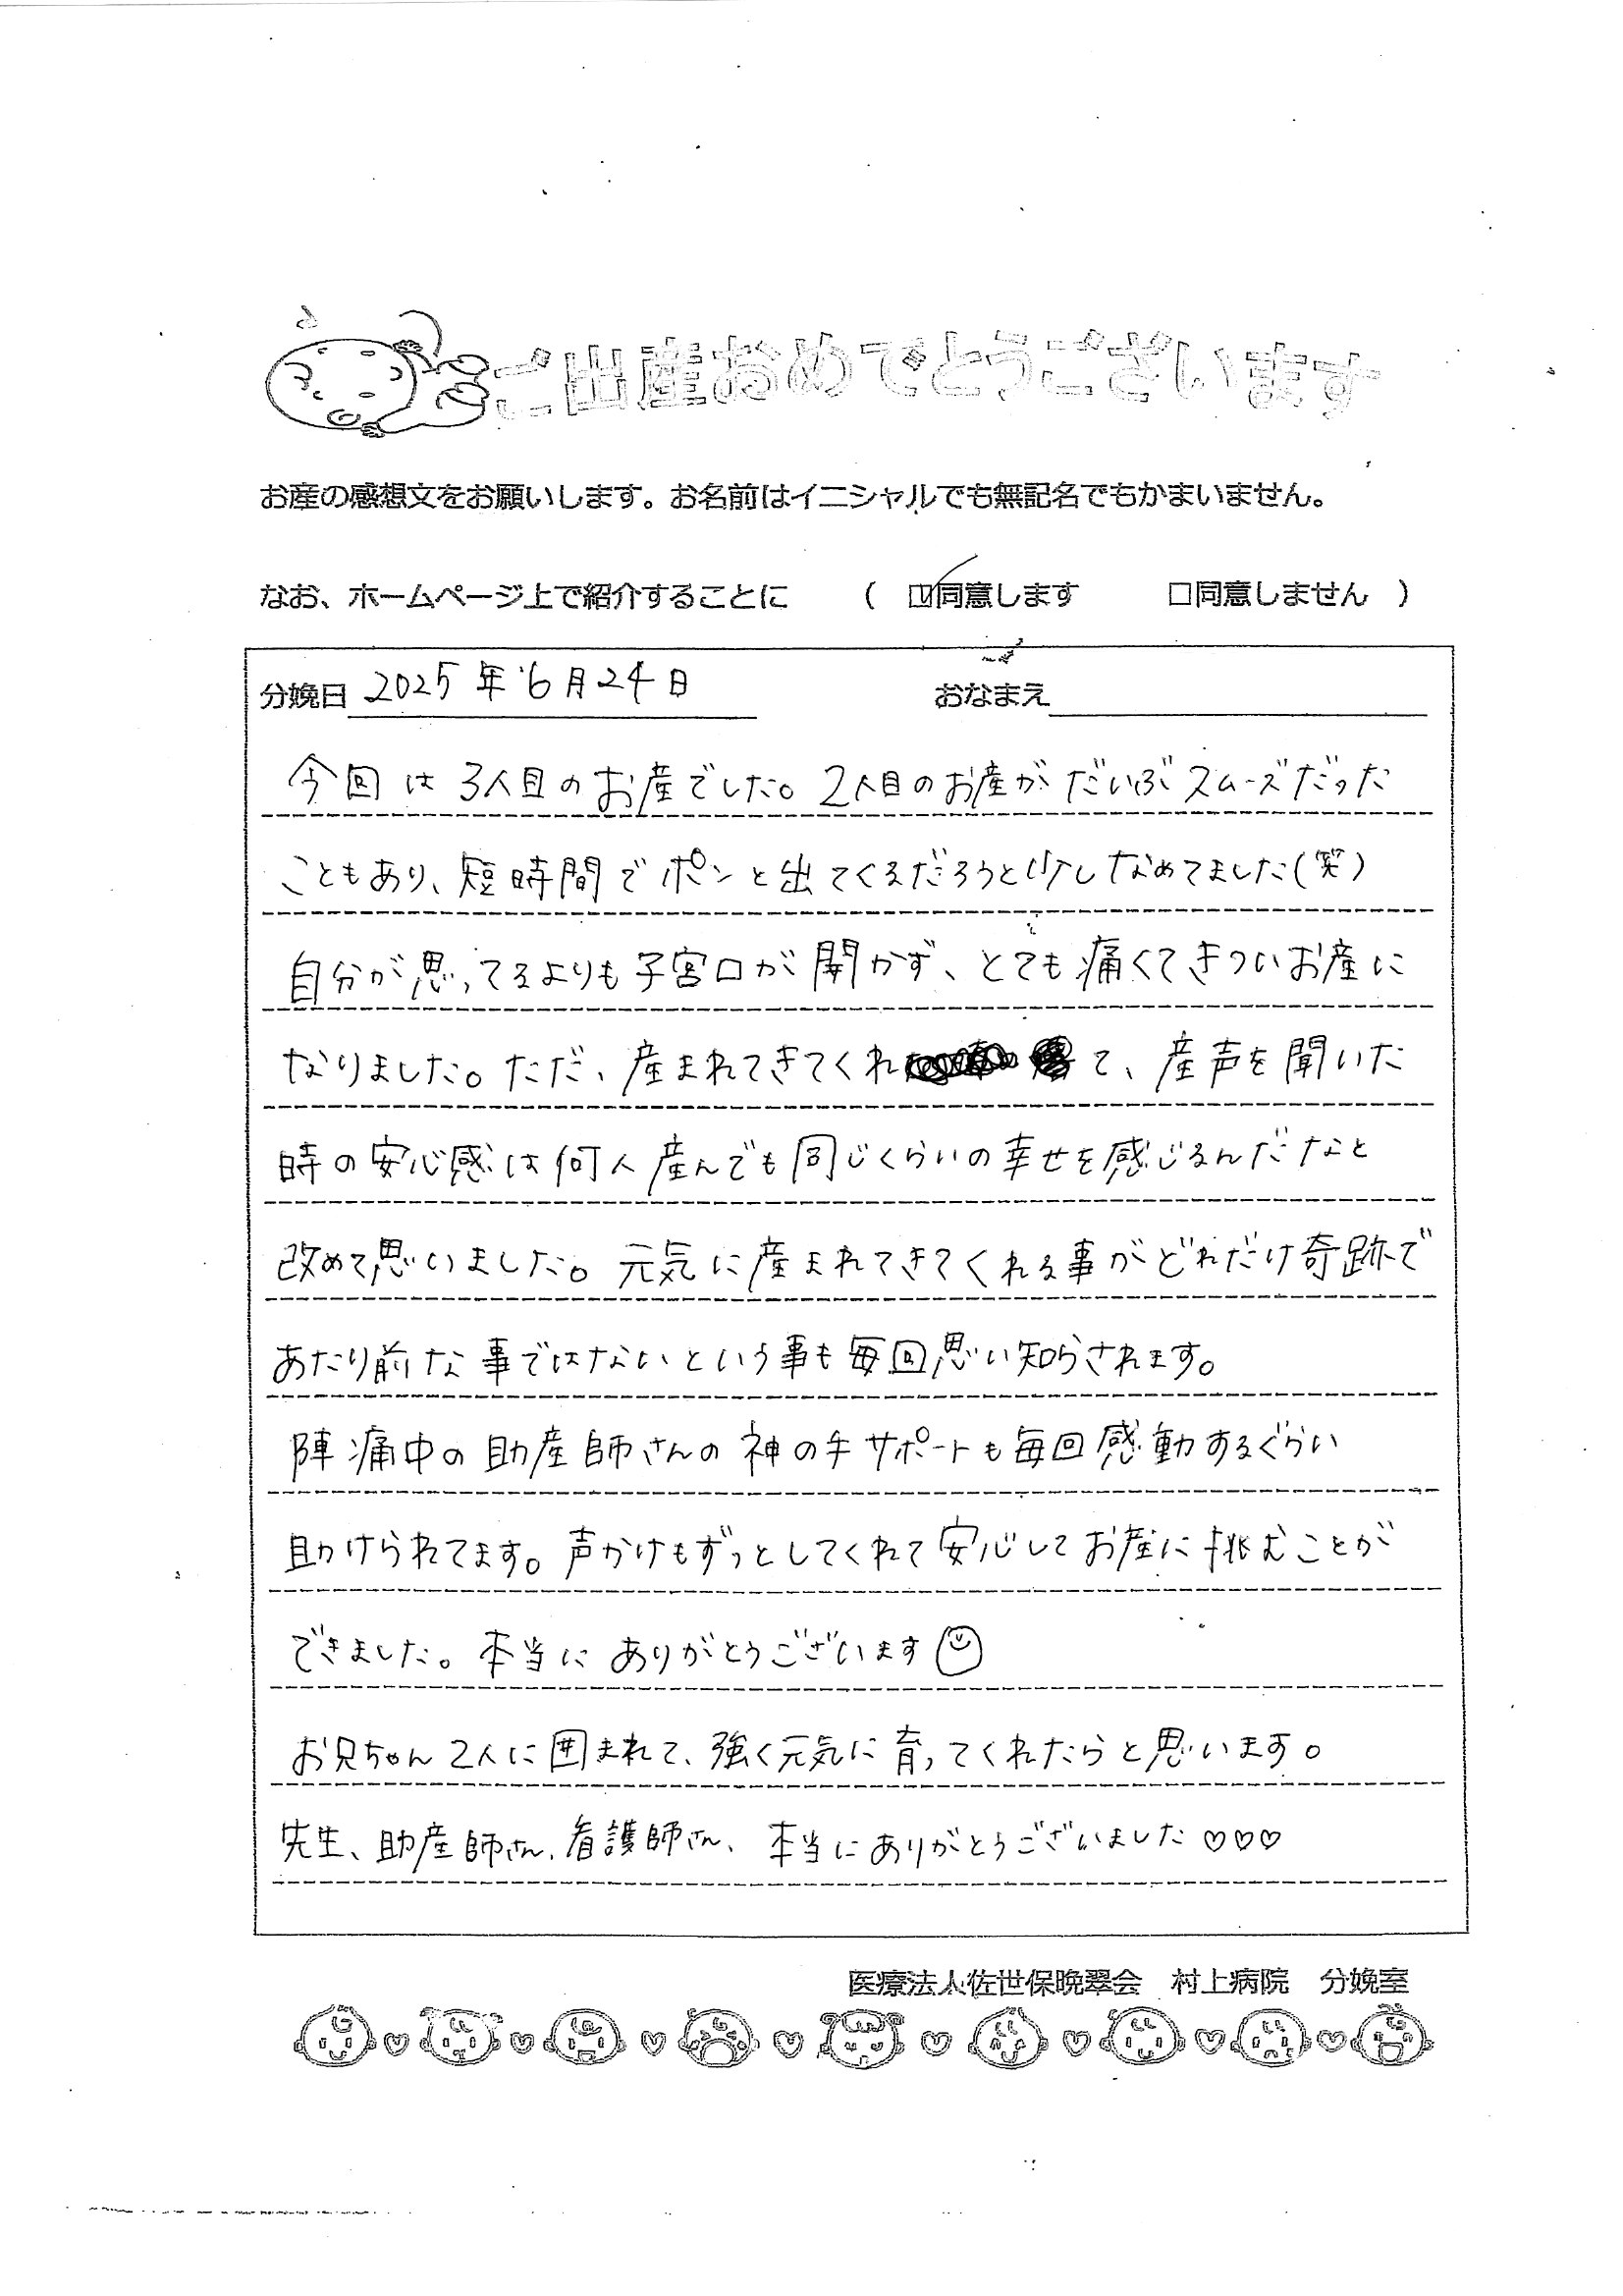 ご出産おめでとうございます
お産の感想文をお願いします。お名前はイニシャルでも無記名でもかまいません。
なお、ホームページ上で紹介することに （ ☑同意します □同意しません ）
分娩日 2025年6月24日 おなまえ
今回は3人目のお産でした。2人目のお産がだいぶスムーズだった
こともあり、短時間でポンと出てくるだろうと少しなめてました(笑)
自分が思ってるよりも子宮口が開かず、とても痛くてきついお産に
なりました。ただ、産まれてきてくれて、産声を聞いた
時の安心感は何人産んでも同じくらいの幸せを感じるんだなと
改めて思いました。元気に産まれてきてくれる事がどれだけ奇跡で
あたり前な事ではないという事も毎回思い知らされます。
陣痛中の助産師さんの神の手サポートも毎回感動するぐらい
助けられてます。声かけもずっとしてくれて安心してお産に挑むことが
できました。本当にありがとうございます
お兄ちゃん2人に囲まれて、強く元気に育ってくれたらと思います。
先生、助産師さん、看護師さん、本当にありがとうございました♡♡♡
医療法人佐世保晩翠会 村上病院 分娩室